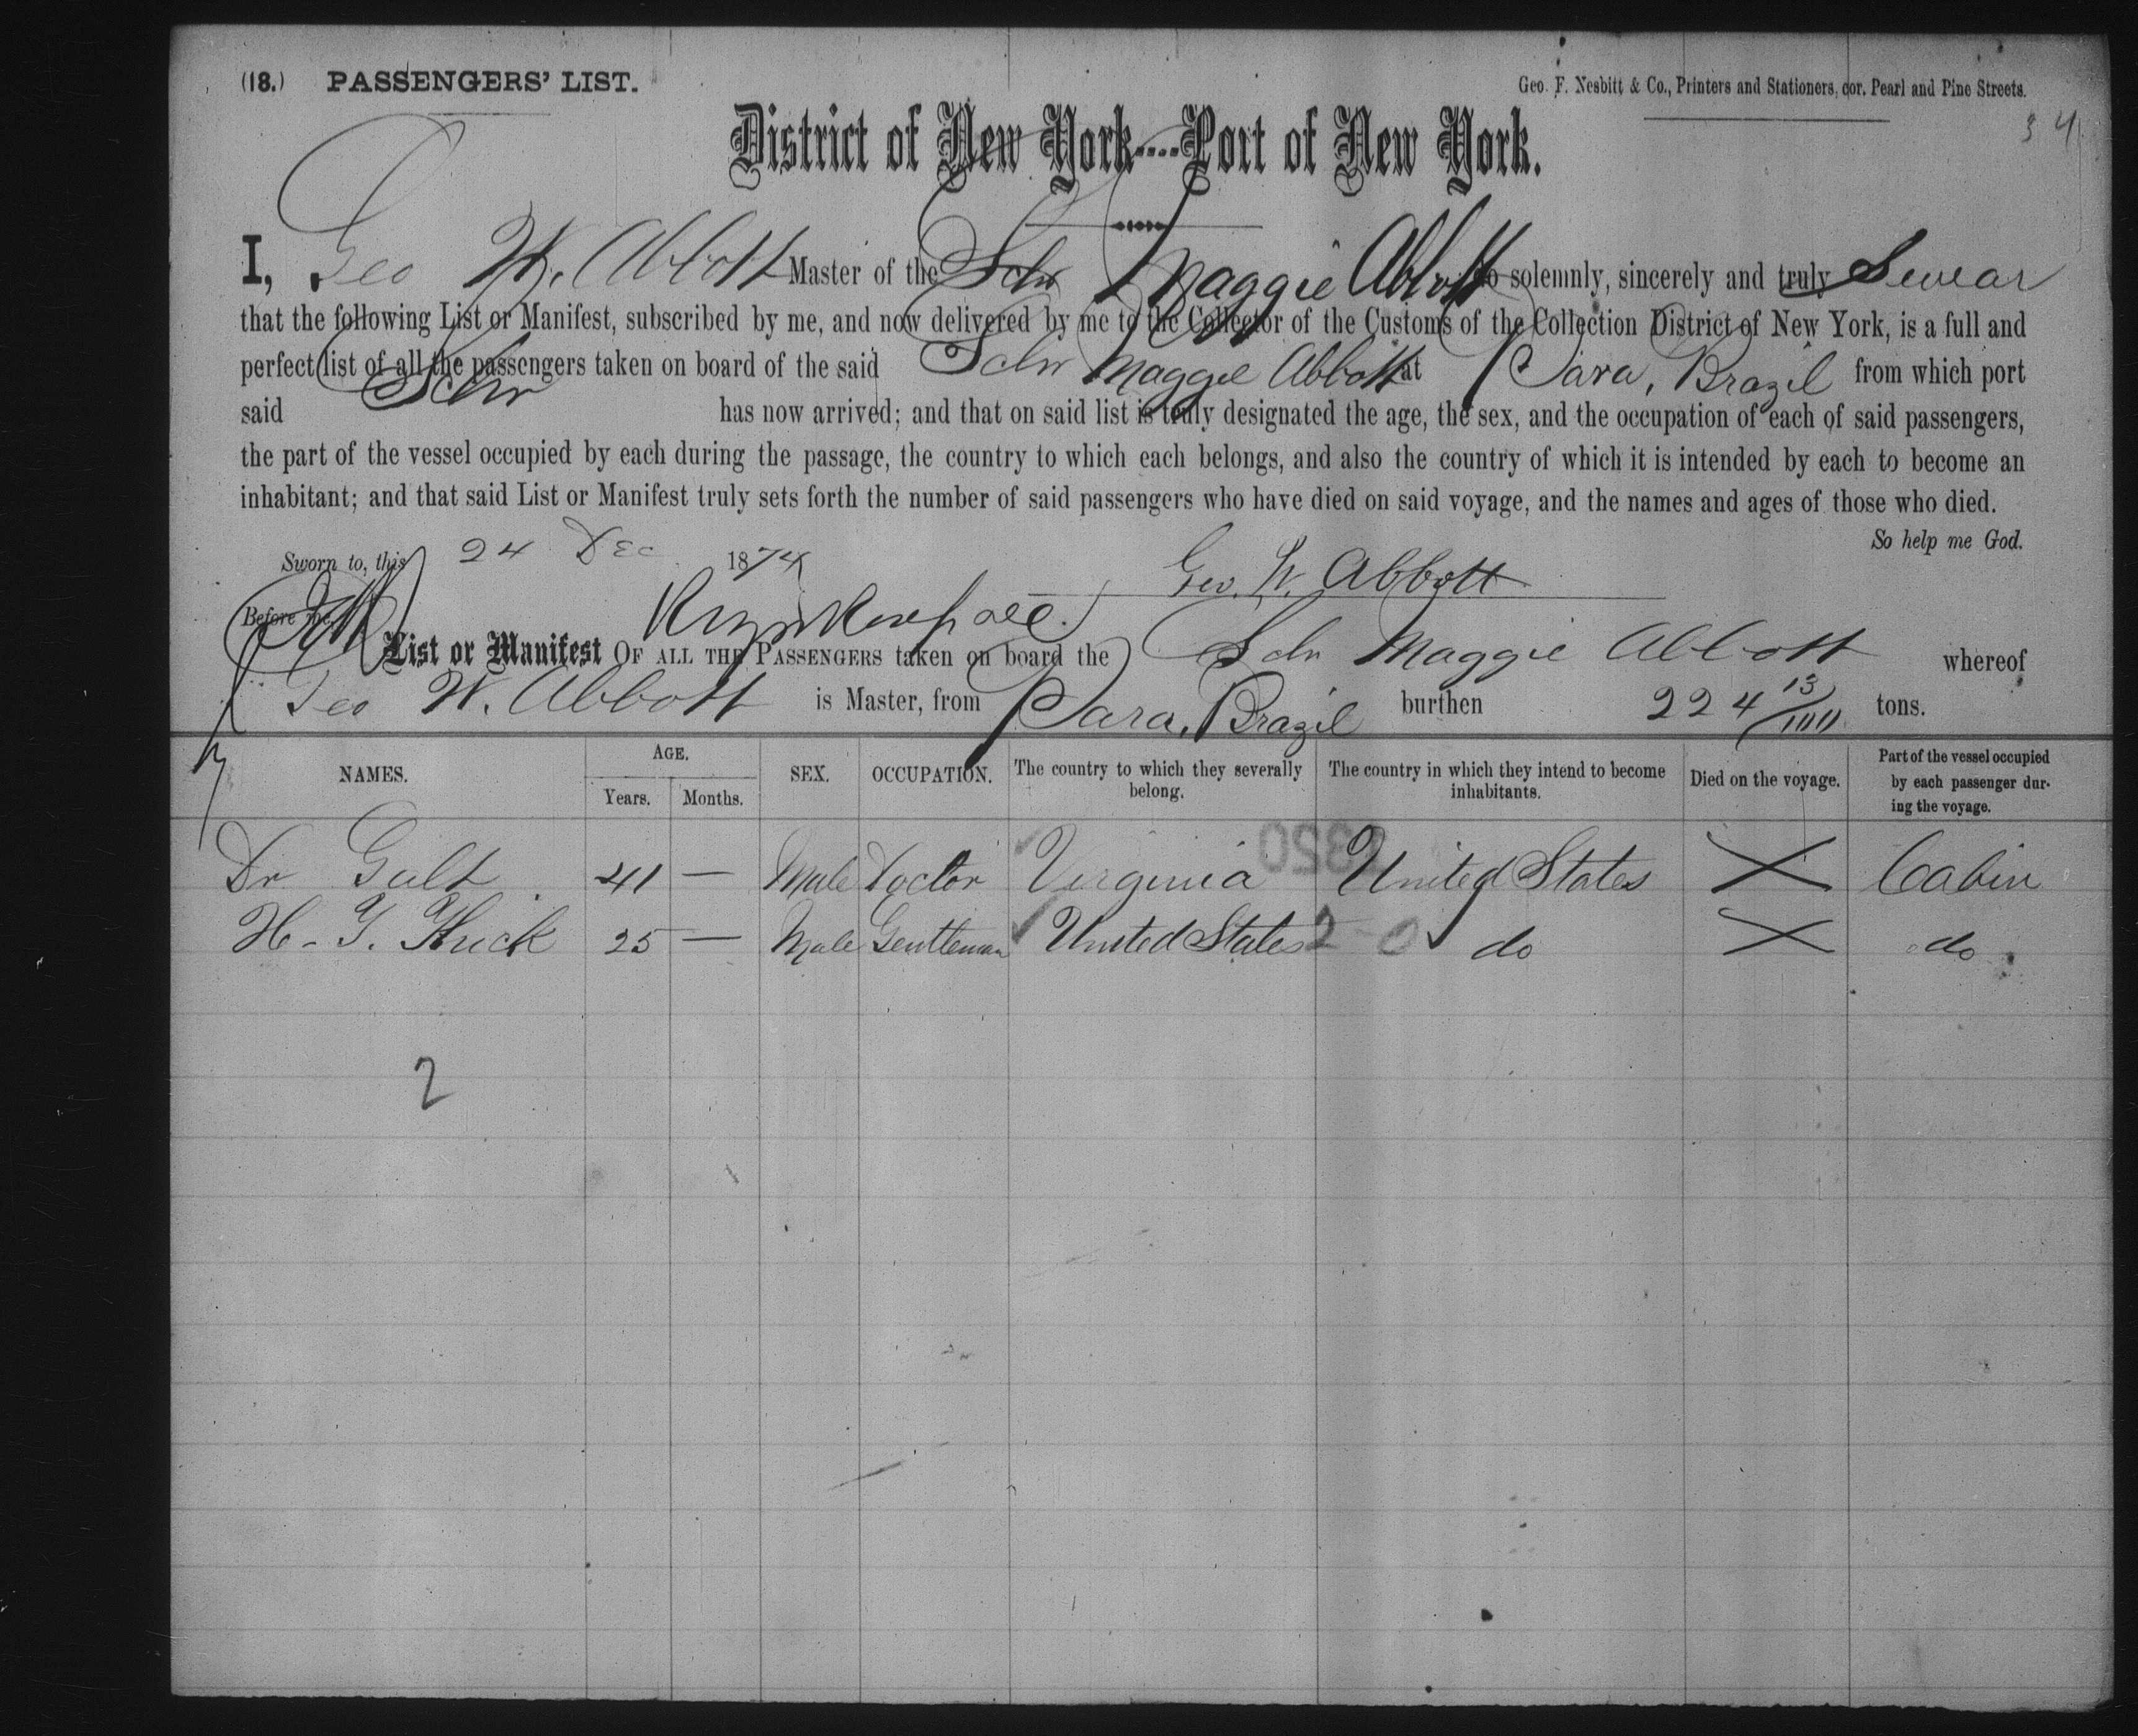 (18.) PASSENGERS' LIST.
Geo. F. Nesbitt & Co., Printers and Stationers, cor. Pearl and Pine Streets.
34
District of New York----Port of New York.
I, Geo W. Abbott Master of the Schr Maggie Abbott do solemnly, sincerely and truly Swear
that the following List or Manifest, subscribed by me, and now delivered by me to the Collector of the Customs of the Collection District of New York, is a full and
perfect list of all the passengers taken on board of the said Schr Maggie Abbott at Para, Brazil from which port
said Schr has now arrived; and that on said list is truly designated the age, the sex, and the occupation of each of said passengers,
the part of the vessel occupied by each during the passage, the country to which each belongs, and also the country of which it is intended by each to become an
inhabitant; and that said List or Manifest truly sets forth the number of said passengers who have died on said voyage, and the names and ages of those who died.
So help me God.
Sworn to, this 24 Dec 1874
Geo. W. Abbott
Before me,
List or Manifest OF ALL THE PASSENGERS taken on board the Schr Maggie Abbott whereof
Geo W. Abbott is Master, from Para, Brazil burthen 224 13/100 tons.
NAMES. AGE. Years. Months. SEX. OCCUPATION. The country to which they severally belong. The country in which they intend to become inhabitants. Died on the voyage. Part of the vessel occupied by each passenger during the voyage.
1350
Dr Galt 41 — Male Doctor Virginia United States X Cabin
H. Y. 25 — Male Gentleman United States 20 do X do
2